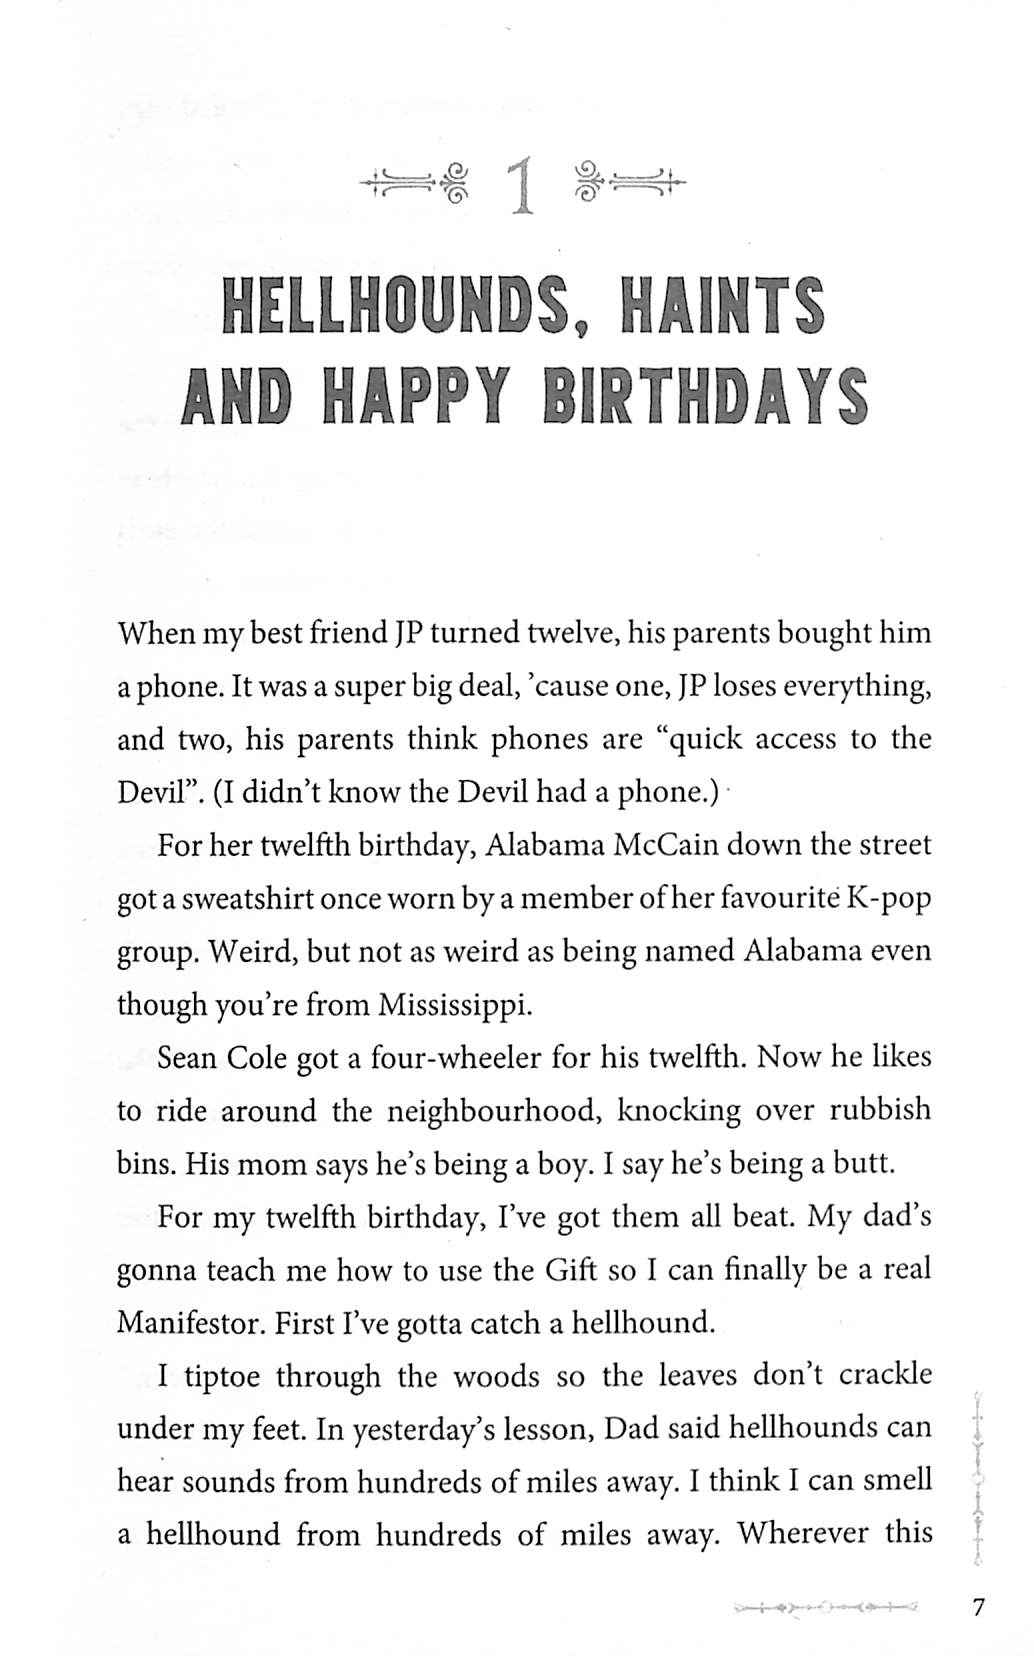 1
HELLHOUNDS, HAINTS
AND HAPPY BIRTHDAYS
When my best friend JP turned twelve, his parents bought him
a phone. It was a super big deal, ’cause one, JP loses everything,
and two, his parents think phones are “quick access to the
Devil”. (I didn’t know the Devil had a phone.)
For her twelfth birthday, Alabama McCain down the street
got a sweatshirt once worn by a member of her favourite K-pop
group. Weird, but not as weird as being named Alabama even
though you’re from Mississippi.
Sean Cole got a four-wheeler for his twelfth. Now he likes
to ride around the neighbourhood, knocking over rubbish
bins. His mom says he’s being a boy. I say he’s being a butt.
For my twelfth birthday, I’ve got them all beat. My dad’s
gonna teach me how to use the Gift so I can finally be a real
Manifestor. First I’ve gotta catch a hellhound.
I tiptoe through the woods so the leaves don’t crackle
under my feet. In yesterday’s lesson, Dad said hellhounds can
hear sounds from hundreds of miles away. I think I can smell
a hellhound from hundreds of miles away. Wherever this
7